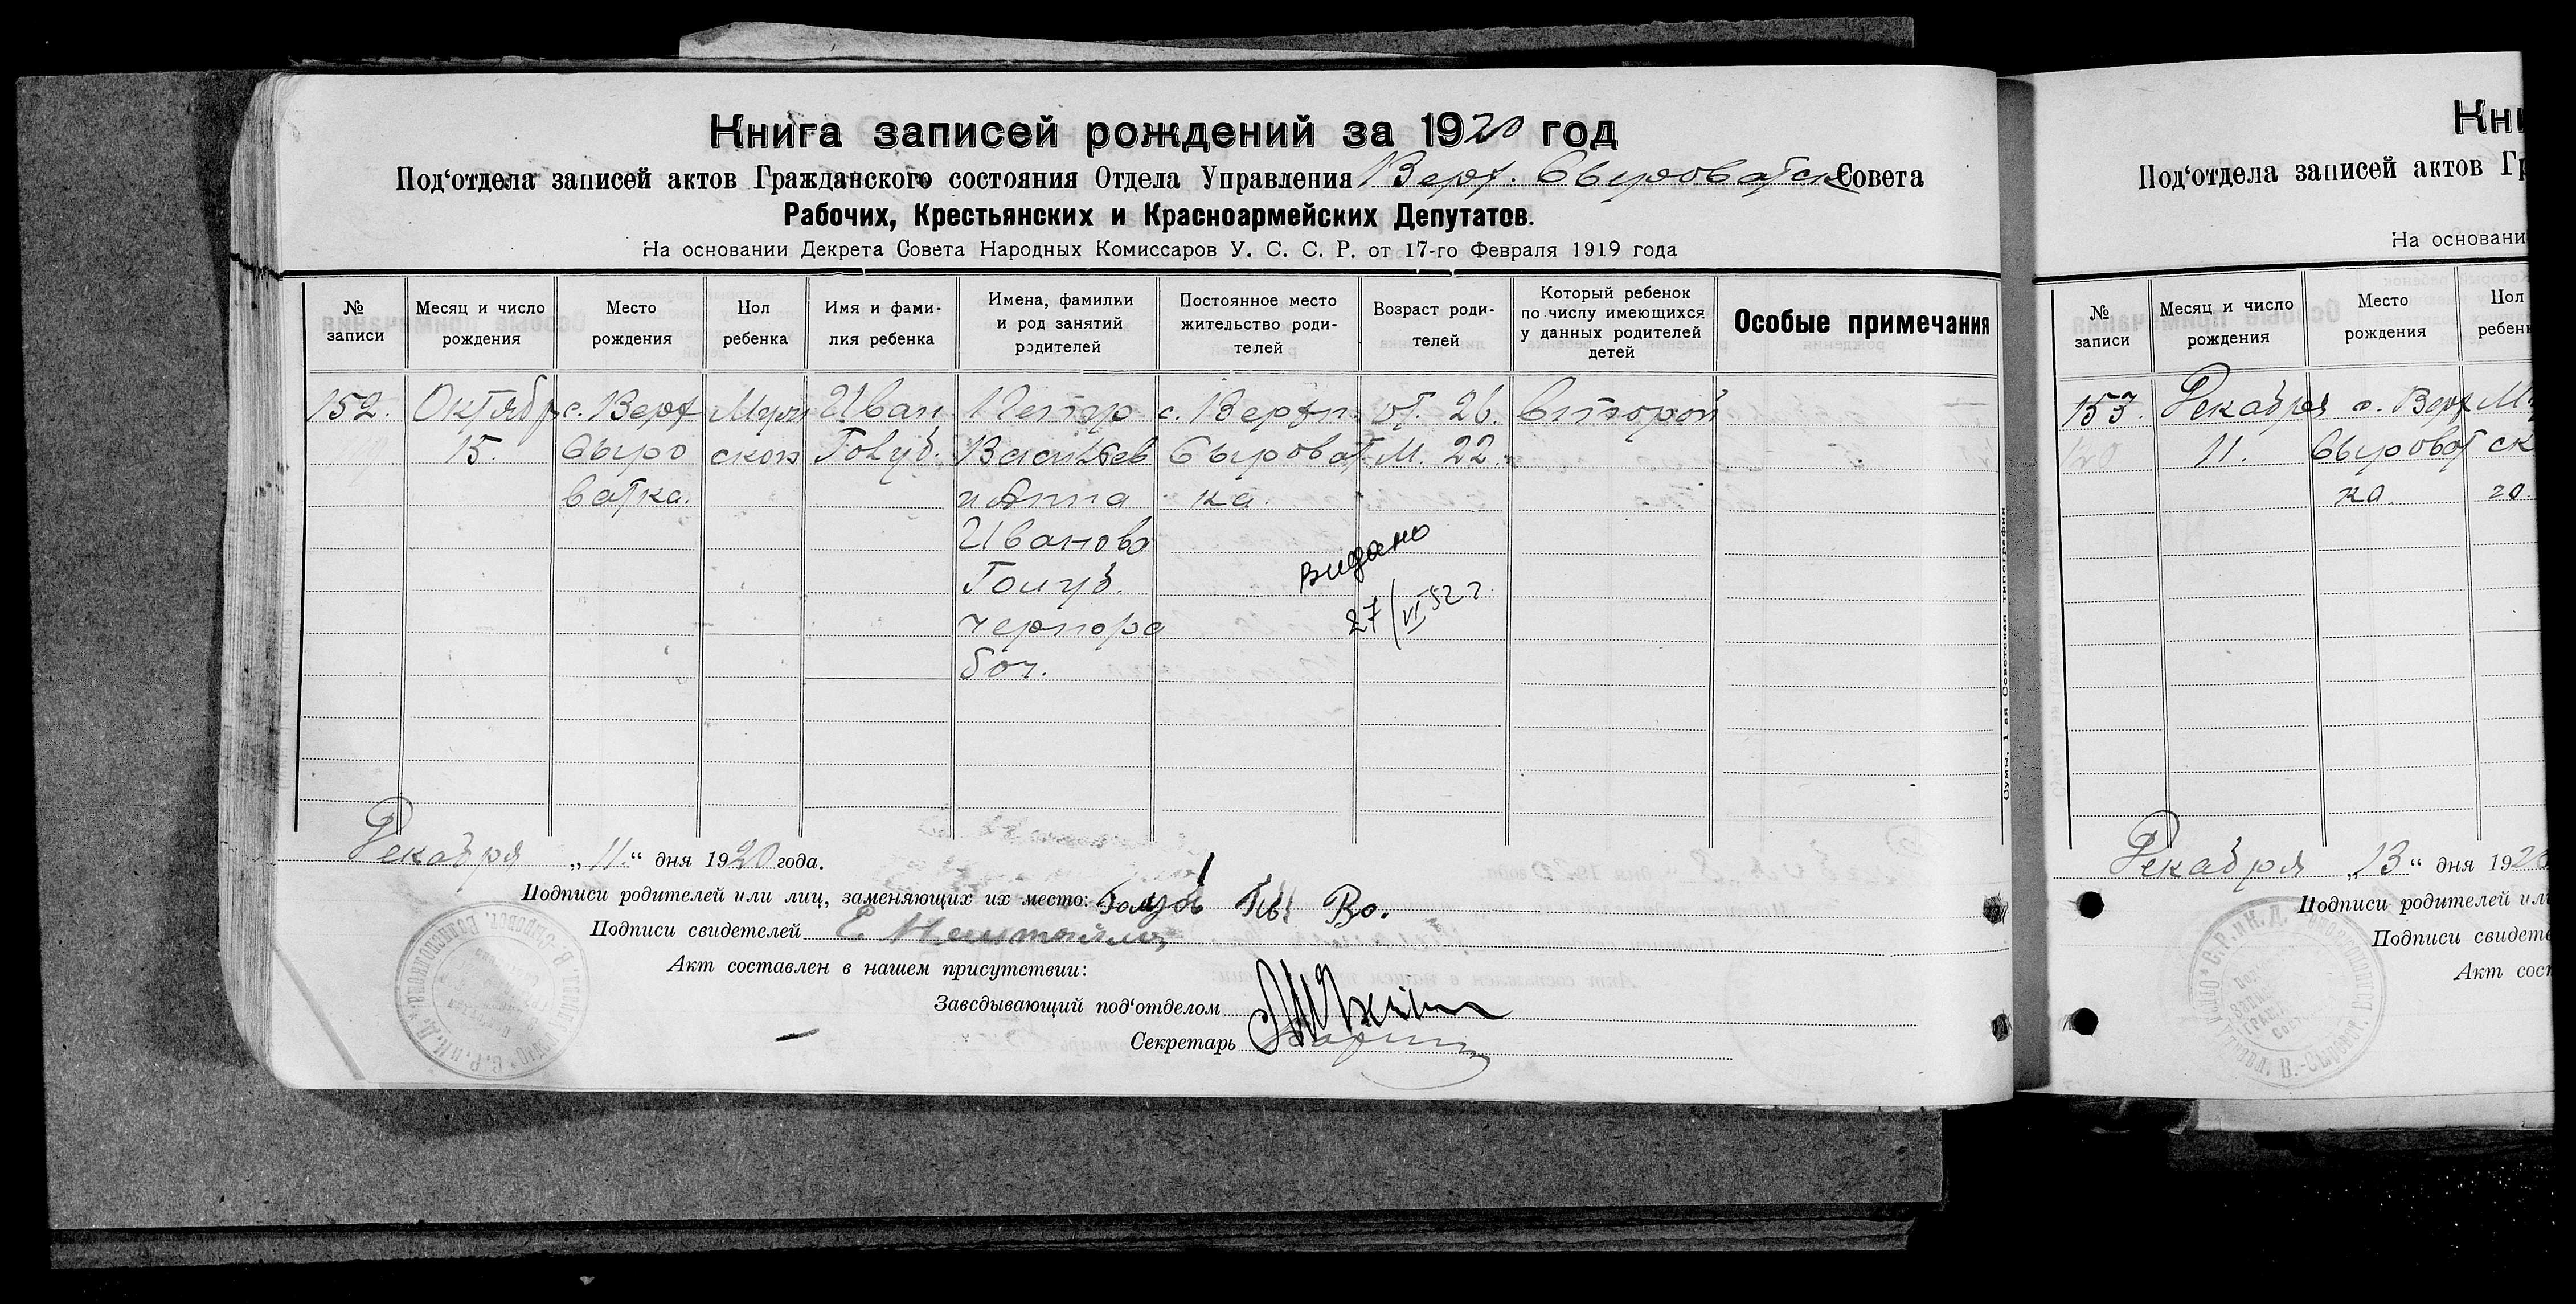 Книга записей рождений за 1920 год
Под'отдела записей актов Гражданского состояния Отдела Управления Верх. Сыроватск Совета
Рабочих, Крестьянских и Красноармейских Депутатов.
На основании Декрета Совета Народных Комиссаров У. С. С. Р. от 17-го Февраля 1919 года
№ записи
Месяц и число рождения
Место рождения
Пол ребенка
Имя и фамилия ребенка
Имена, фамилии и род занятий родителей
Постоянное место жительство родителей
Возраст родителей
Который ребенок по числу имеющихся у данных родителей детей
Особые примечания
152. Октябр с. Верх Муж Иван Петр с. Верхн. от. 26. второй
15. Сыро ской Голуб. Васильев Сыроват М. 22.
ватка. и Анна ка.
Иванова
Голуб.
чернора
боч.
видано
27/VI 52 г.
Декабря „11.“ дня 1920 года.
Подписи родителей или лиц, заменяющих их место: Голубь
Подписи свидетелей
Акт составлен в нашем присутствии:
Заведывающий под'отделом
Секретарь
Сумы, 1-ая Советская типография
Кни
Под'отдела записей актов Гр
На основани
№ записи
Месяц и число рождения
Место рождения
Пол ребенк
153. Декабря с. Верх М
11. Сыроват ск
ка. го.
Декабря „13“ дня 1920
Подписи родителей или
Подписи свидете
Акт сост